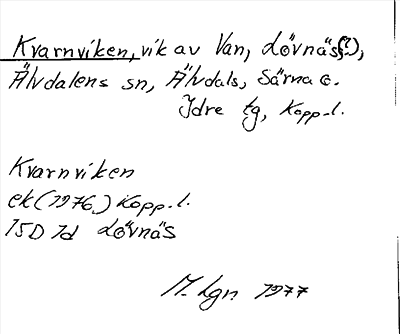 Kvarnviken, vik av Van, Lövnäs(?),
Älvdalens sn, Älvdals, Särna o.
Idre tg, Kopp. l.
Kvarnviken
ek (1976) Kopp. l.
15D 1d Lövnäs
M. Lgn 1977